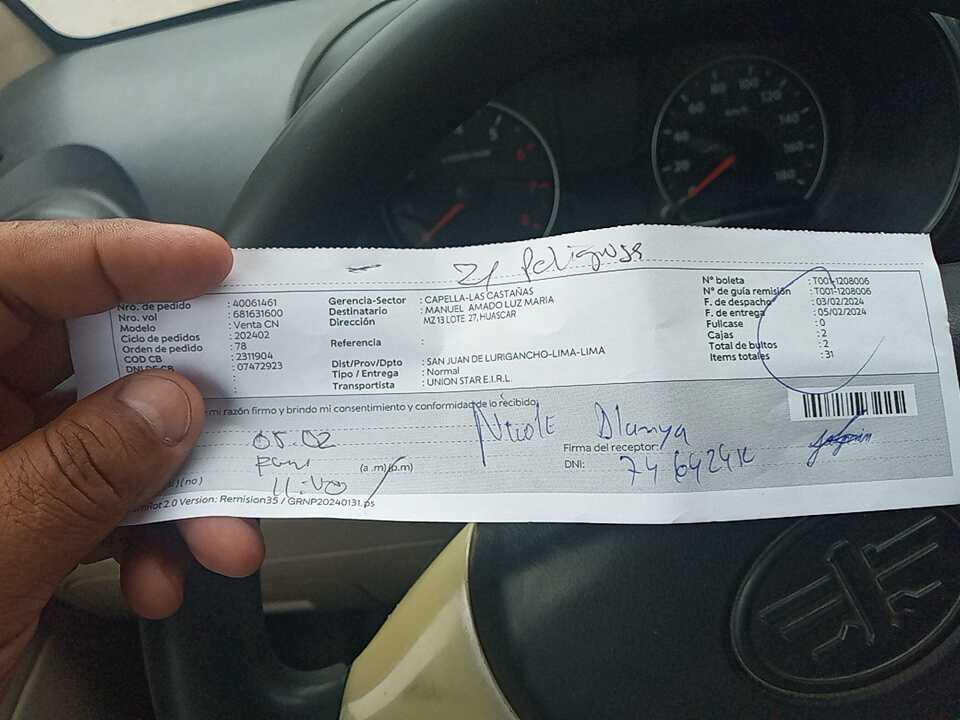 Nro. de pedido : 40061461
Nro. vol : 681631600
Modelo : Venta CN
Ciclo de pedidos : 202402
Orden de pedido : 78
COD CB : 2311904
DNI DE CB : 07472923
Gerencia-Sector : CAPELLA-LAS CASTAÑAS
Destinatario : MANUEL AMADO LUZ MARIA
Dirección : MZ 13 LOTE 27, HUASCAR
Referencia :
Dist/Prov/Dpto : SAN JUAN DE LURIGANCHO-LIMA-LIMA
Tipo / Entrega : Normal
Transportista : UNION STAR E.I.R.L.
N° boleta : T001-1208006
N° de guía remisión : T001-1208006
F. de despacho : 03/02/2024
F. de entrega : 05/02/2024
Fullcase : 0
Cajas : 2
Total de bultos : 2
Items totales : 31
mi razón firmo y brindo mi consentimiento y conformidad de lo recibido
05.02
(a.m)(p.m)
Firma del receptor:
DNI:
(no)
2.0 Version: Remision35 / GRNP20240131.ps
5
6
7
8
20
40
60
80
100
120
140
160
180
km/h